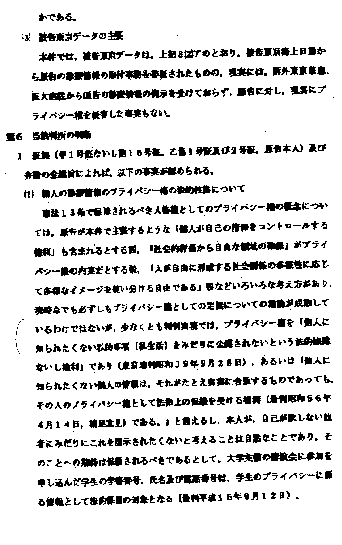 かである。
(3) 被告東京データの主張
本件では，被告東京データは，上記2(2)アのとおり，被告東京海上日動か
ら原告の診療情報の取付事務を委託されたものの，現実には，
医大病院から原告の診療情報の開示を受けておらず，原告に対し，現実にプ
ライバシー権を侵害した事実もない。
第6 当裁判所の判断
1 証拠（甲1号証ないし第16号証，乙第1号証及び2号証，原告本人）及び
弁論の全趣旨によれば，以下の事実が認められる。
(1) 個人の診療情報のプライバシー権の法的性格について
憲法13条で保障されるべき人格権としてのプライバシー権の概念につい
ては，原告が本件で主張するような「個人が自己の情報をコントロールする
権利」も含まれるとする説，「社会的評価から自由な領域の確保」がプライ
バシー権の内実だとする説，「人が自由に形成する社会関係の多様性に応じ
て多様なイメージを使い分ける自由である」などいろいろな考え方があり，
現時点でも必ずしもプライバシー権としての定義についての議論が成熟して
いるわけではないが，少なくとも裁判実務では，プライバシーを「個人に
知られたくない私的事項（私生活）をみだりに公開されないという法的保障
ないし権利」であり（東京地判昭和39年9月28日），あるいは「個人に
知られたくない個人の情報は，それがたとえ真実に合致するものであっても，
その人のプライバシー権として法律上の保護を受ける権利（最判昭和56年
4月14日，補足意見）である。」と言えるし，本人が，自己が欲しない他
者にみだりにこれを開示されたくないと考えることは自然なことであり，そ
のことへの期待は保護されるべきであるとして，大学主催の講演会に参加を
申し込んだ学生の学籍番号，氏名及び電話番号は，学生のプライバシーに係
る情報として法的保護の対象となる（最判平成15年9月12日）。